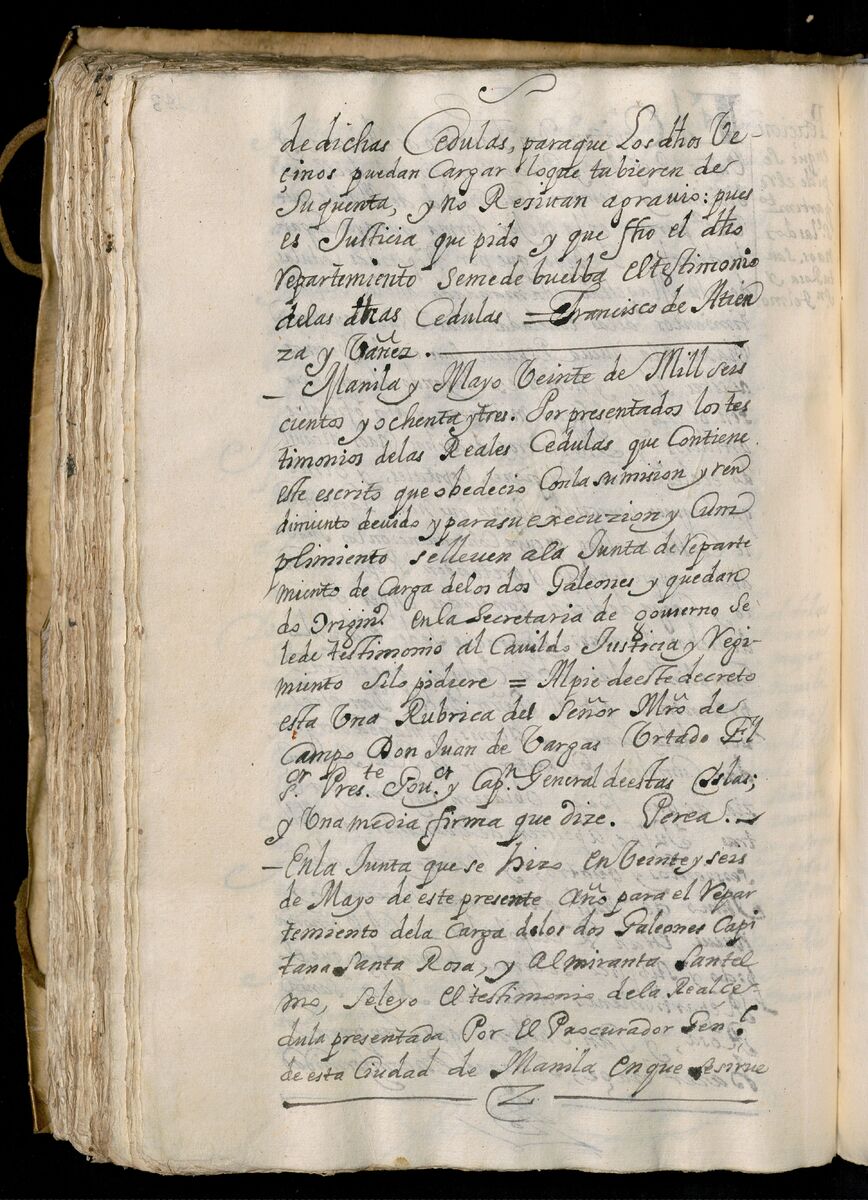 de dichas Cedulas, paraque Los dhos Ve
çinos puedan Cargar loque tubieren de
Suquenta, y no Resiuan agrauio: pues
es Justicia que pido y que fho el dho
repartemiento semede buelba el testimonio
delas dhas Cedulas = Francisco de Atien
za y Vañez.
- Manila y Mayo Veinte de Mill seis
cientos y ochenta y tres. Por presentados los tes
timonios delas Reales Cedulas que Contiene
este escrito que obedecio Conla sumision y ren
dimiento deuido y parasu execuzion y Cum
plimiento selleuen ala Junta de reparte
miento de Carga delos dos Galeones y quedan
do Origin.^s en la Secretaria de gouierno se
lede testimonio al Cauildo Justicia y Regi-
miento silo pidiere = Alpie deeste decreto
esta Vna Rubrica del Señor Mr̃o de
Campo Don Juan de Vargas Vrtado
Pres.^te Gou.^or y Cap.^n General deestas Islas;
y Vna media firma que dize. Perea.
- Enla Junta que se hizo en Veinte y seis
de Mayo de este presente Año para el repar
temiento dela Carga delos dos Galeones Capi
tana Santa Rosa, y Almiranta Santel
mo, seleyo el testimonio de la Real ce-
dula presentada Por el Procurador Gen.^l
de esta Ciudad de Manila enque sesirue